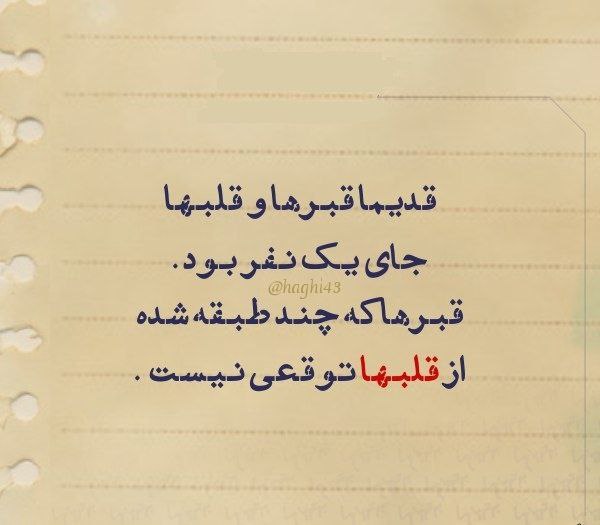 قدیما قبرها و قلبها
جای یک نفر بود.
@haghi43
قبرها که چند طبقه شده
از قلبها توقعی نیست.